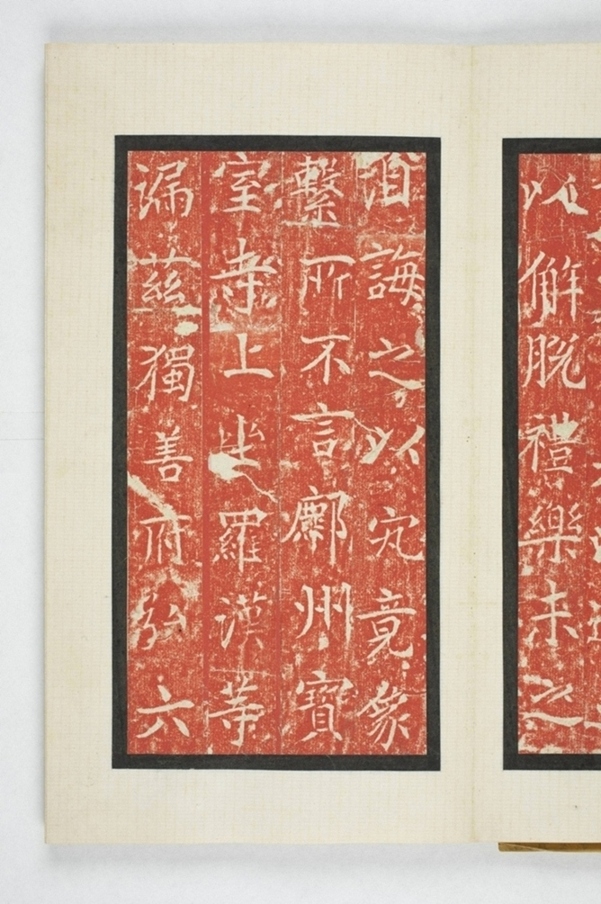 以解脫禮樂未之
洎誨之以究竟象
繫所不言鄜州寶
室寺上坐羅漢等
漏茲獨善府弘六